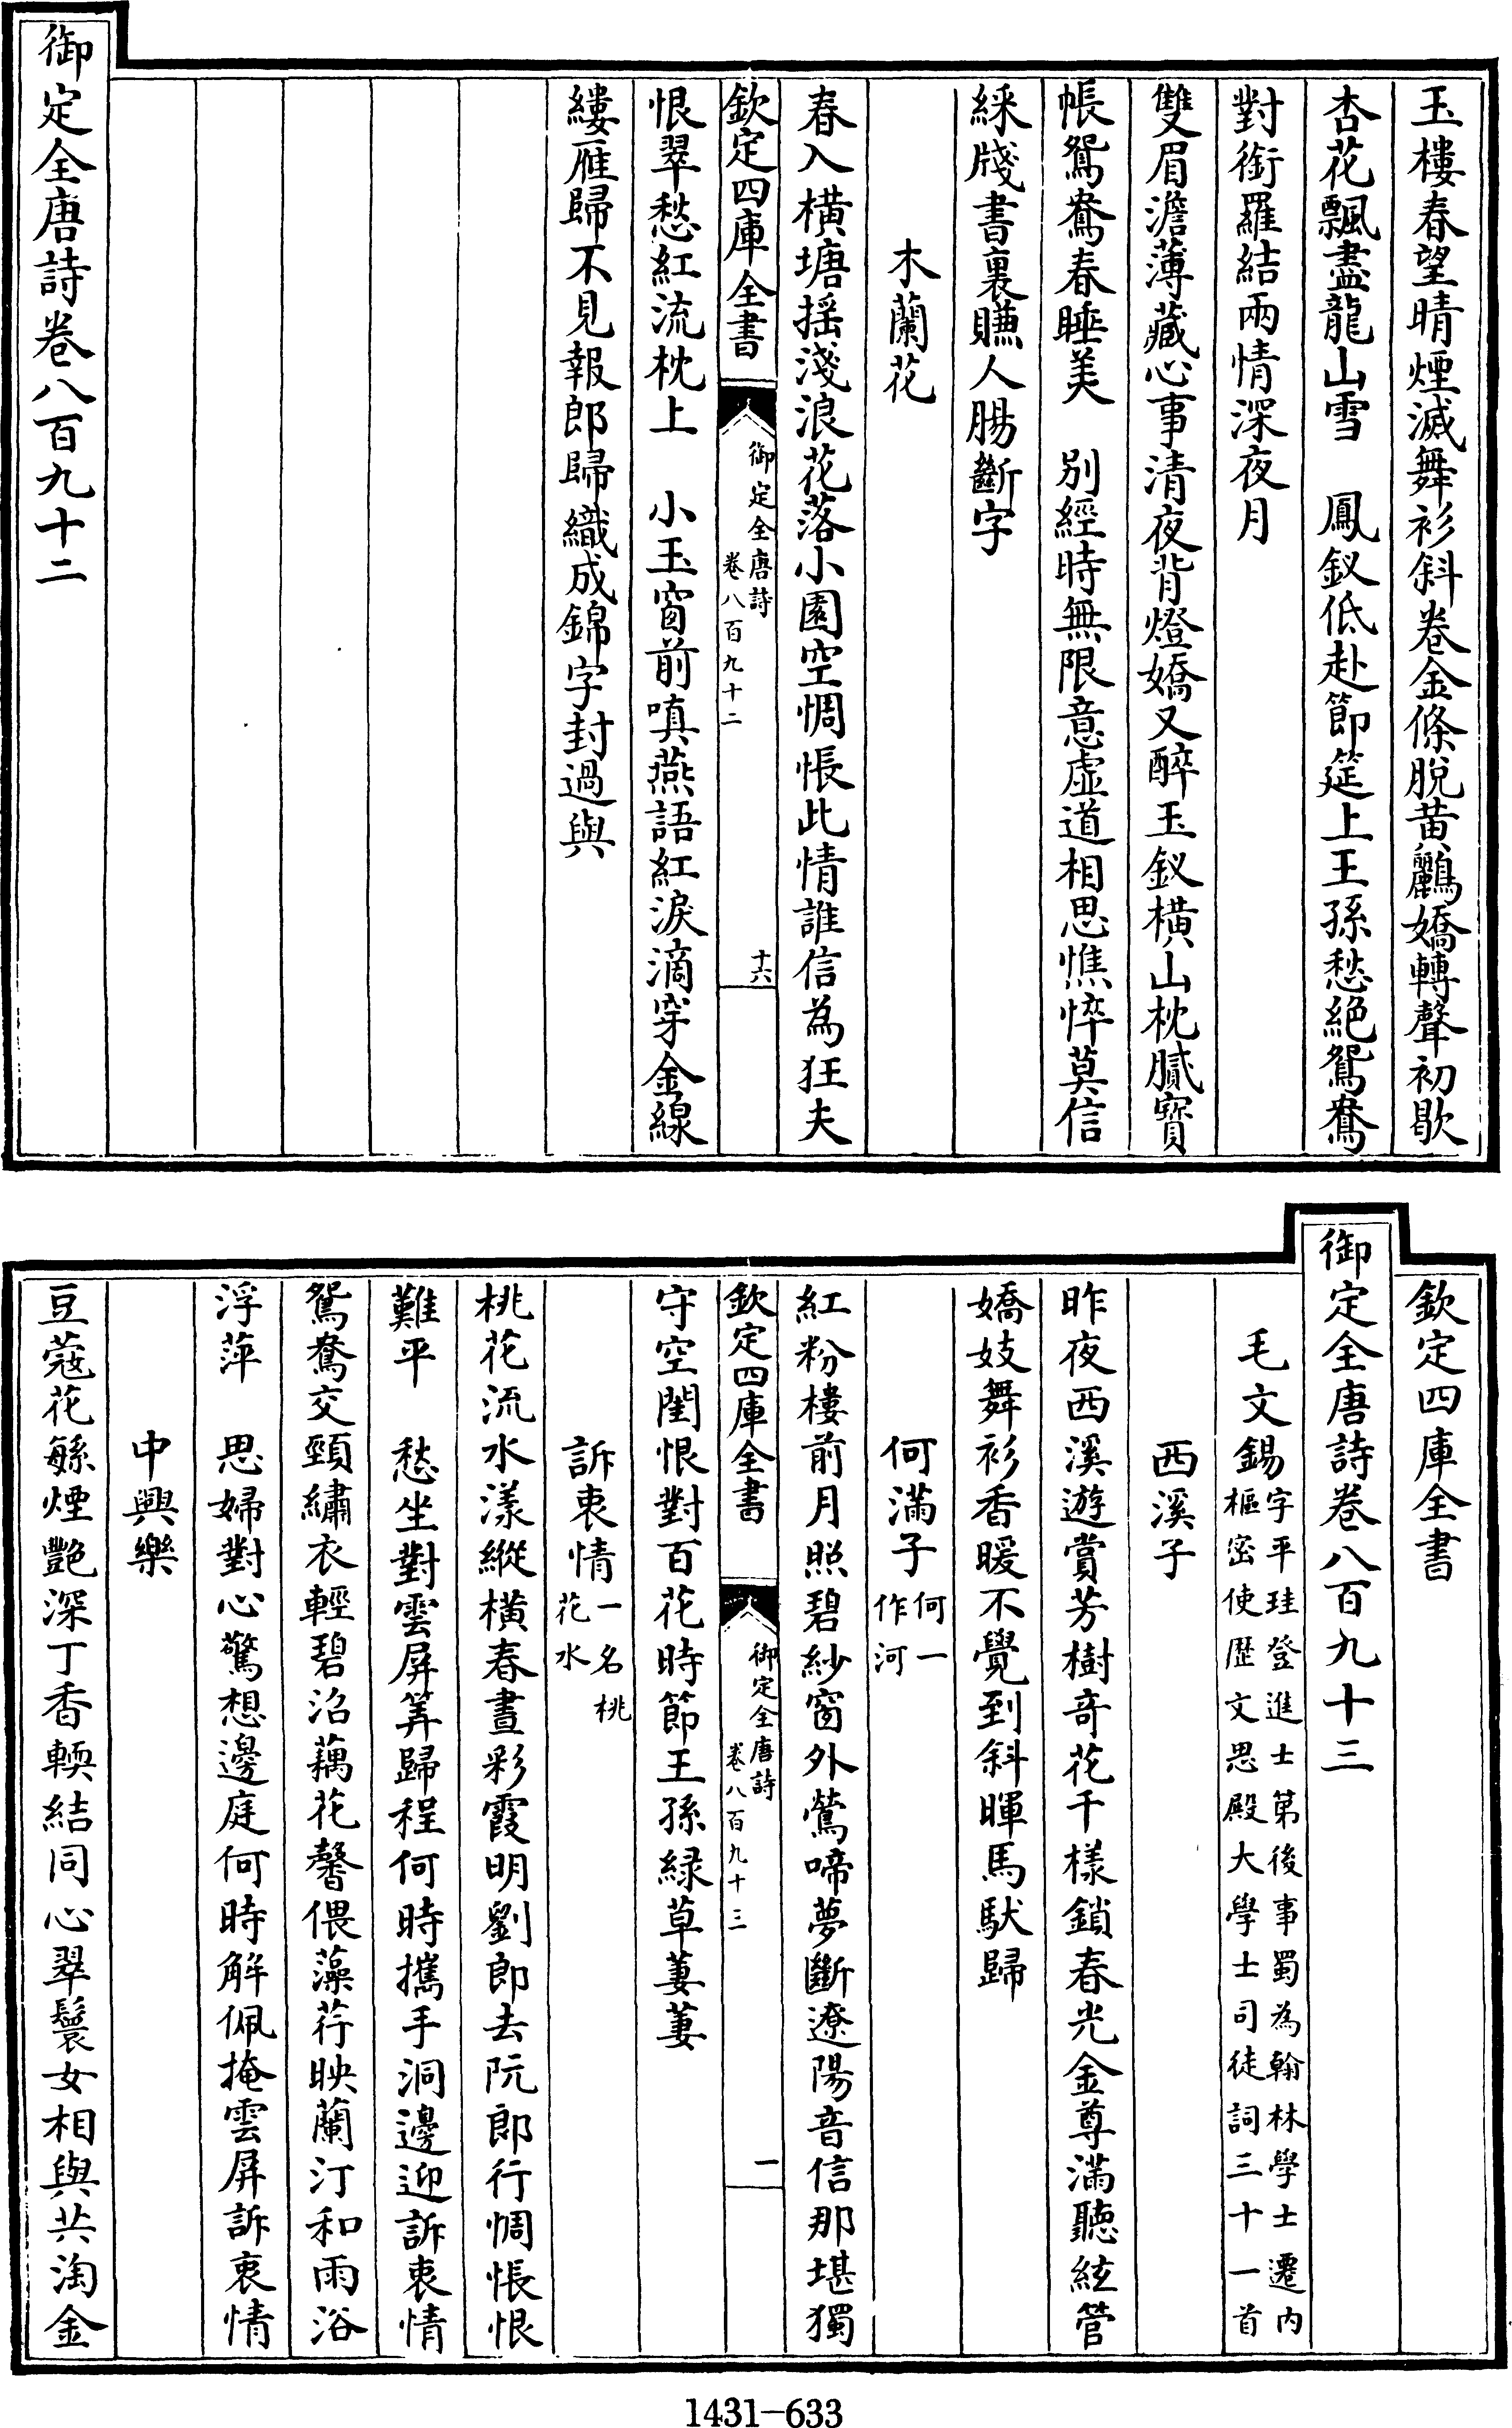 玉樓春望晴煙滅舞衫斜卷金條脫黄鸝嬌轉聲初歇
杏花飄盡龍山雪　鳳釵低赴節筵上王孫愁絕鴛鴦
對銜羅結兩情深夜月
雙眉澹薄藏心事清夜背燈嬌又醉玉釵横山枕膩寶
帳鴛鴦春睡美　別經時無限意虛道相思憔悴莫信
綵牋書裏賺人腸斷字
木蘭花
春入横塘揺淺浪花落小園空惆悵此情誰信為狂夫
欽定四庫全書
御定全唐詩
卷八百九十二
十六
恨翠愁紅流枕上　小玉窗前嗔燕語紅淚滴穿金線
縷雁歸不見報郎歸織成錦字封過與
御定全唐詩卷八百九十二
欽定四庫全書
御定全唐詩卷八百九十三
毛文錫字平珪登進士第後事蜀為翰林學士遷内
樞密使歴文思殿大學士司徒詞三十一首
西溪子
昨夜西溪遊賞芳樹奇花千様鎖春光金尊滿聽絃管
嬌妓舞衫香暖不覺到斜暉馬馱歸
何滿子何一
作河
紅粉樓前月照碧紗窗外鶯啼夢斷遼陽音信那堪獨
欽定四庫全書
御定全唐詩
卷八百九十三
一
守空閨恨對百花時節王孫緑草萋萋
訴衷情一名桃
花水
桃花流水漾縱横春晝彩霞明劉郎去阮郎行惆悵恨
難平　愁坐對雲屏筭歸程何時攜手洞邊迎訴衷情
鴛鴦交頸繡衣輕碧沼藕花馨偎藻荇映蘭汀和雨浴
浮萍　思婦對心驚想邊庭何時解佩掩雲屏訴衷情
中興樂
豆蔻花繁煙艷深丁香輭結同心翠鬟女相與共淘金
1431—633